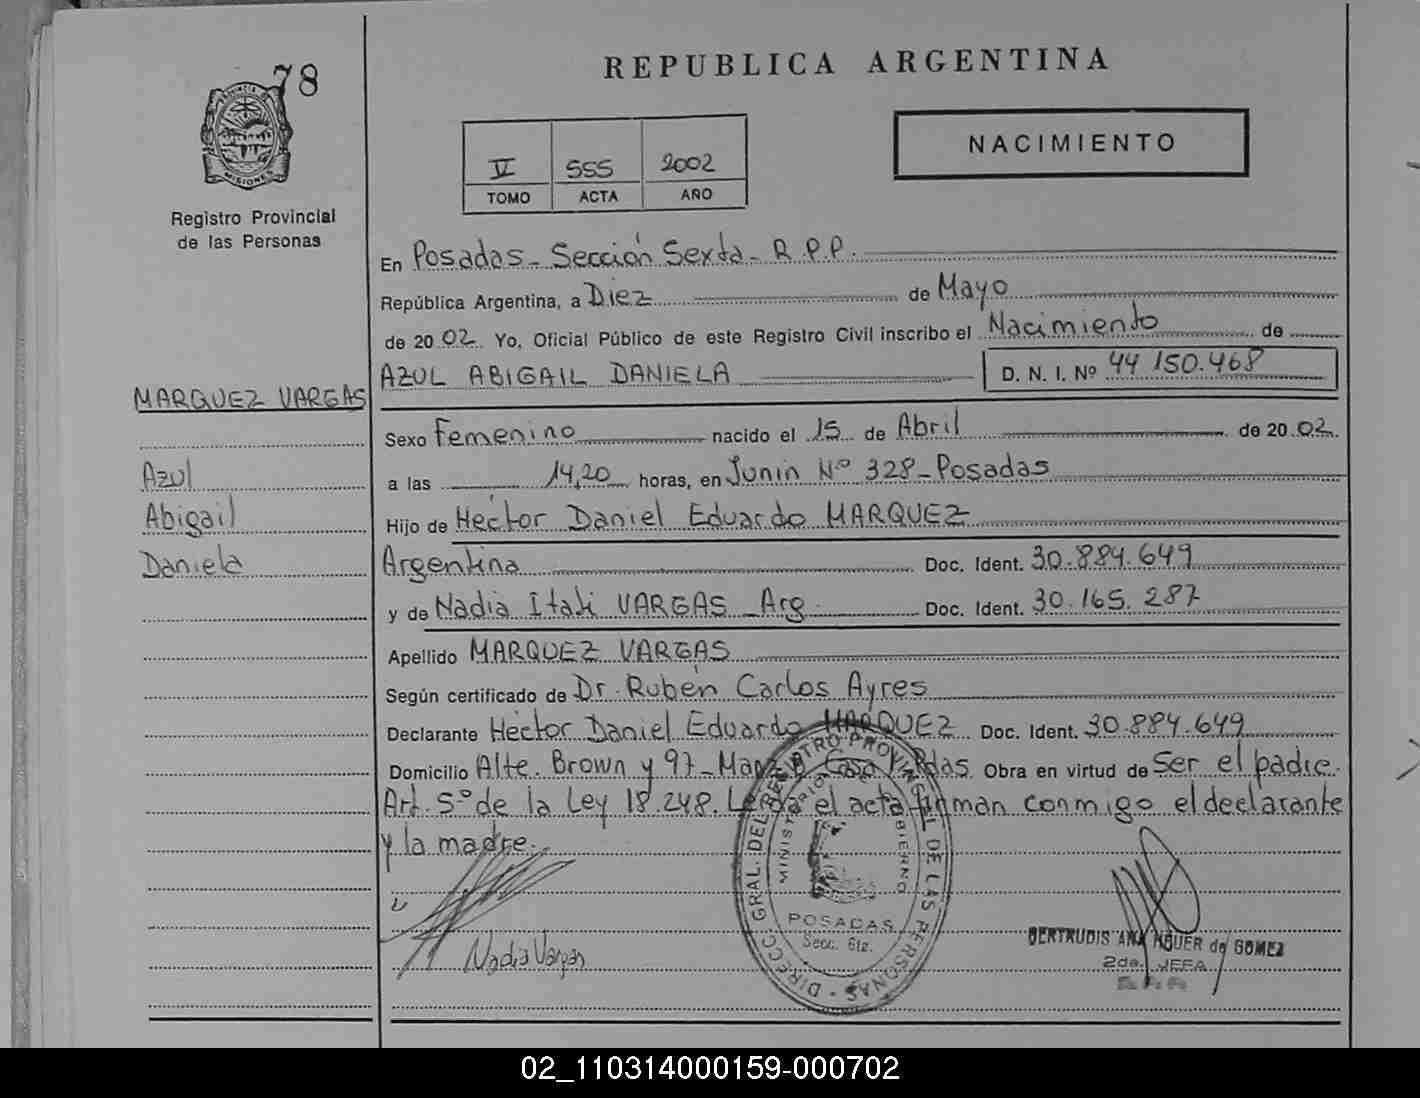 78
REPUBLICA ARGENTINA
NACIMIENTO
PROVINCIA DE
MISIONES
Registro Provincial
de las Personas
IV 555 2002
TOMO ACTA AÑO
En Posadas - Sección Sexta - R.P.P.
República Argentina, a Diez de Mayo
de 2002 Yo, Oficial Público de este Registro Civil inscribo el Nacimiento de
AZUL ABIGAIL DANIELA D. N. I. Nº 44 150.468
MARQUEZ VARGAS
Azul
Abigail
Daniela
Sexo Femenino nacido el 15 de Abril de 2002
a las 14,20 horas, en Junin Nº 328 - Posadas
Hijo de Hector Daniel Eduardo MARQUEZ
Argentina Doc. Ident. 30.884.649
y de Nadia Itati VARGAS - Arg. Doc. Ident. 30.165.287
Apellido MARQUEZ VARGAS
Según certificado de Dr. Rubén Carlos Ayres
Declarante Hector Daniel Eduardo MARQUEZ Doc. Ident. 30.884.649
Domicilio Alte. Brown y 97 - Casa Pdas. Obra en virtud de Ser el padre.
Art. 5º de la Ley 18.248. Leída el acta firman conmigo el declarante
y la madre.
DIRECC. GRAL. DEL REGISTRO PROVINCIAL DE LAS PERSONAS
MINISTERIO DE GOBIERNO
POSADAS
Secc. 6ta.
Nadia Vargas
GERTRUDIS ANA de GOMEZ
2da. JEFA
02_110314000159-000702